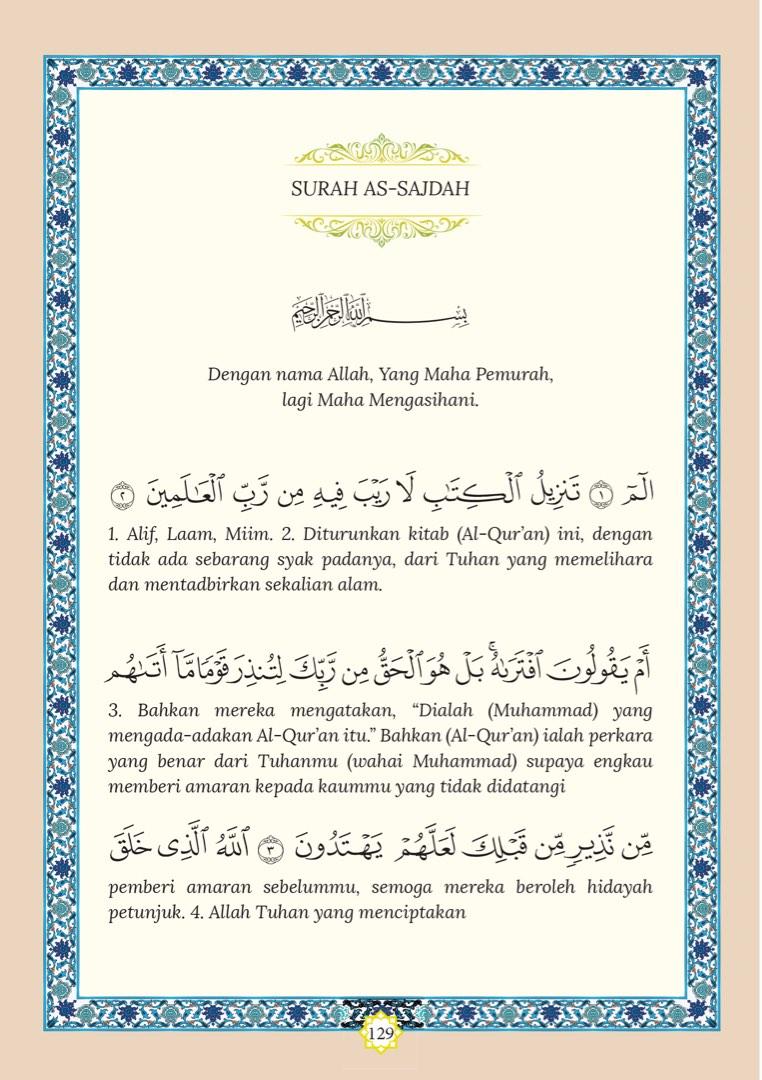 SURAH AS-SAJDAH
بِسْمِ اللَّهِ الرَّحْمَٰنِ الرَّحِيمِ
Dengan nama Allah, Yang Maha Pemurah,
lagi Maha Mengasihani.
الٓمٓ ١ تَنزِيلُ ٱلْكِتَٰبِ لَا رَيْبَ فِيهِ مِن رَّبِّ ٱلْعَٰلَمِينَ ٢
1. Alif, Laam, Miim. 2. Diturunkan kitab (Al-Qur’an) ini, dengan
tidak ada sebarang syak padanya, dari Tuhan yang memelihara
dan mentadbirkan sekalian alam.
أَمْ يَقُولُونَ ٱفْتَرَىٰهُ ۚ بَلْ هُوَ ٱلْحَقُّ مِن رَّبِّكَ لِتُنذِرَ قَوْمًا مَّآ أَتَىٰهُم
3. Bahkan mereka mengatakan, “Dialah (Muhammad) yang
mengada-adakan Al-Qur’an itu.” Bahkan (Al-Qur’an) ialah perkara
yang benar dari Tuhanmu (wahai Muhammad) supaya engkau
memberi amaran kepada kaummu yang tidak didatangi
مِّن نَّذِيرٍ مِّن قَبْلِكَ لَعَلَّهُمْ يَهْتَدُونَ ٣ ٱللَّهُ ٱلَّذِى خَلَقَ
pemberi amaran sebelummu, semoga mereka beroleh hidayah
petunjuk. 4. Allah Tuhan yang menciptakan
129